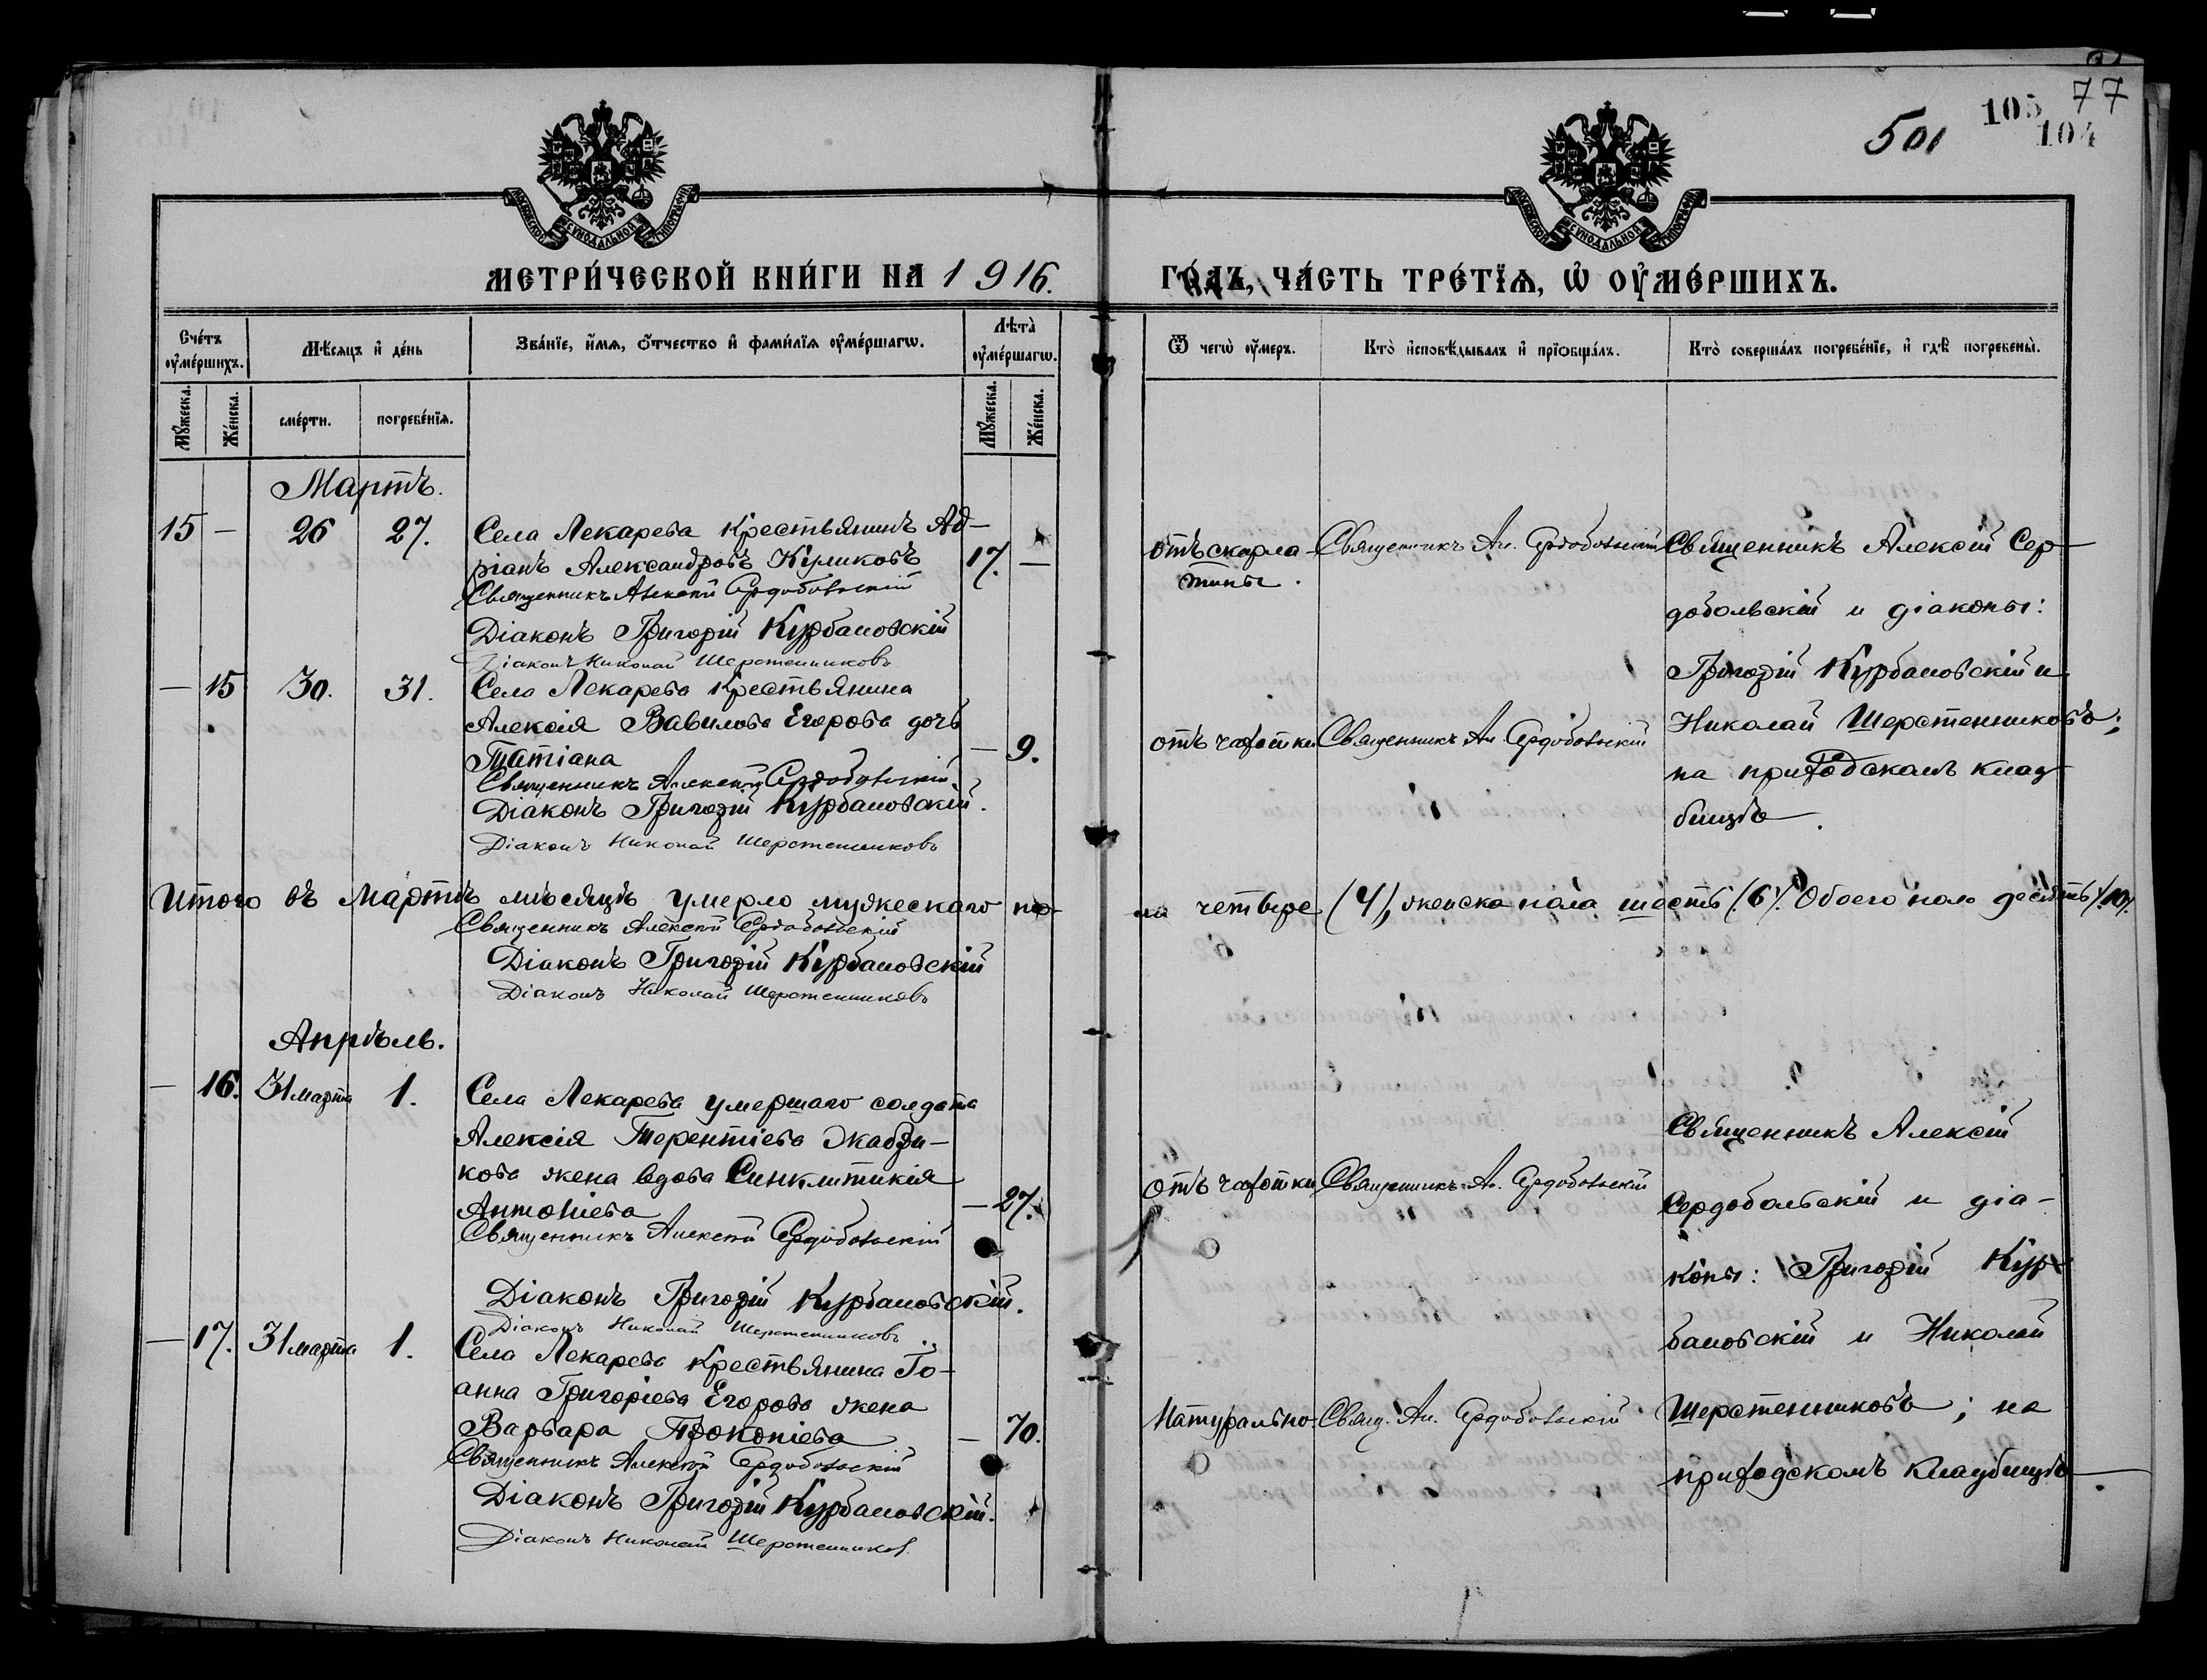 77
105
104
501
МОСКОВСКОЙ СѴНОДАЛЬНОЙ ТИПОГРАФІИ
МОСКОВСКОЙ СѴНОДАЛЬНОЙ ТИПОГРАФІИ
МЕТРИ́ЧЕСКОЙ КНИ́ГИ НА 1916.
ГО́ДЪ, ЧА́СТЬ ТРЕ́ТЇѦ, Ѡ҆ ОУ҆МЕ́РШИХЪ.
Сче́тъ оу҆ме́ршихъ.
Мѣ́сяцъ и҆ де́нь
Зва́нїе, и҆́мѧ, ѻ҆́тчество и҆ фами́лїѧ оу҆ме́ршагѡ.
Лѣ̀та оу҆ме́ршагѡ.
Ѿ чегѡ̀ оу҆́меръ.
Кто̀ и҆сповѣ́дывалъ и҆ прїѡбща́лъ.
Кто̀ соверша́лъ погребе́нїе, и҆ гдѣ̀ погребены̀.
Мꙋ́жеска.
Же́нска.
сме́рти.
погребе́нїѧ.
Мꙋ́жеска.
Же́нска.
Мартъ.
15 — 26 27. Села Лекарева крестьянинъ Ад-
ріанъ Александровъ Куликовъ 17. —
Священникъ Алексѣй Сердобольскій
Діаконъ Григорій Курбановскій
Діаконъ Николай Шерстенниковъ
отъ скарла-
тины.
Священникъ Ал. Сердобольскій
Священникъ Алексій Сер-
добольскій и діаконы:
Григорій Курбановскій и
Николай Шерстенниковъ;
на приходскомъ клад-
бищѣ.
— 15 30. 31. Села Лекарева крестьянина
Алексія Вавилова Егорова дочь
Татіана — 9.
Священникъ Алексѣй Сердобольскій.
Діаконъ Григорій Курбановскій.
Діаконъ Николай Шерстенниковъ
отъ чахотки
Священникъ Ал. Сердобольскій
Итого въ Мартѣ мѣсяцѣ умерло мужескаго по-
ла четверо (4), женска пола шесть (6). Обоего пола десять (10).
Священникъ Алексѣй Сердобольскій
Діаконъ Григорій Курбановскій
Діаконъ Николай Шерстенниковъ
Апрѣль.
— 16. 31 марта 1. Села Лекарева умершаго солдата
Алексія Терентіева Жабри-
кова жена вдова Синклитикія
Антоніева — 27.
Священникъ Алексѣй Сердобольскій
Діаконъ Григорій Курбановскій.
Діаконъ Николай Шерстенниковъ
отъ чахотки
Священникъ Ал. Сердобольскій
Священникъ Алексій
Сердобольскій и діа-
коны: Григорій Кур-
бановскій и Николай
Шерстенниковъ; на
приходскомъ кладбищѣ.
— 17. 31 марта 1. Села Лекарева крестьянина Іо-
анна Григоріева Егорова жена
Варвара Прокопіева — 70.
Священникъ Алексѣй Сердобольскій
Діаконъ Григорій Курбановскій.
Діаконъ Николай Шерстенников.
Натурально
Свящ. Ал. Сердобольскій